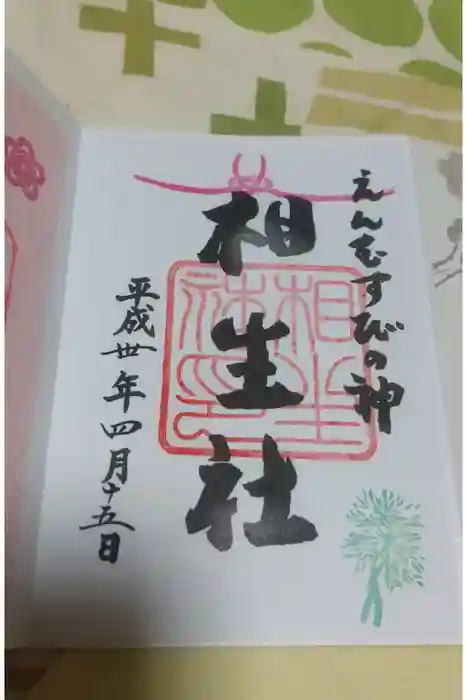 えんむすびの神
相生社
平成卅年四月十五日
相生
社印